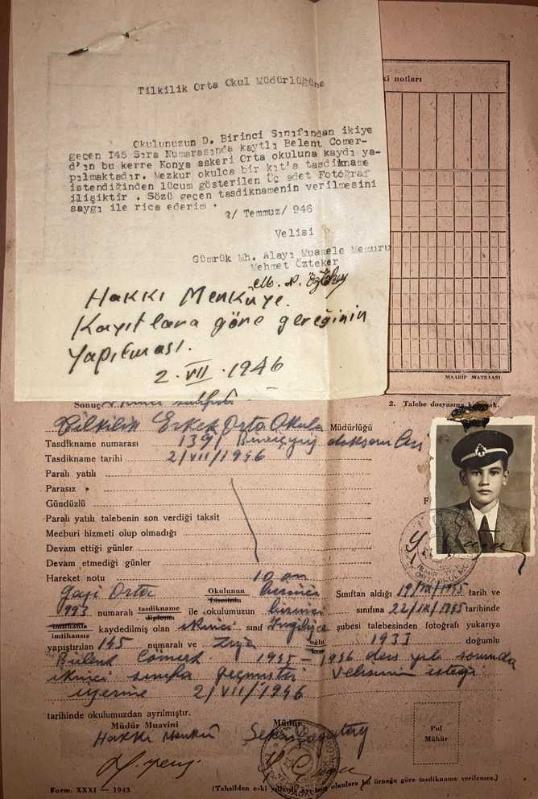 Tilkilik Orta Okul Müdürlüğüne
Okulunuzun D. Birinci Sınıfından ikiye
geçen I45 Sıra Numarasında kaytlı Belent Comer-
d'in bu kerre Konya askeri Orta okuluna kaydı ya-
pılmaktadır. Mezkur okulca bir kıt'a tasdikname
istendiğinden lücum gösterilen Üç adet Fotoğraf
ilişiktir . Sözü geçen tasdiknamenin verilmesini
saygı ile rica ederim .
2/ Temmuz/ 946
Velisi
Gümrük Mh. Alayı Muamele Memuru
Mehmet Özteker
Hakkı Menküye.
Kayıtlara göre gereğinin
yapılması.
2.VII.1946
ki notları
MAARİF MATBAASI
Sonuç
2. Talebe dosyasına
Tilkilik Erkek Orta Okulu Müdürlüğü
Tasdikname numarası 1391
Tasdikname tarihi 2/VII/1946
Paralı yatılı
Parasız
Gündüzlü
Paralı yatılı talebenin son verdiği taksit
Mecburi hizmeti olup olmadığı
Devam ettiği günler
Devam etmediği günler
Hareket notu 10 on
Gazi Orta Okulunun birinci Sınıftan aldığı tarih ve
993 numaralı tasdikname ile okulumuzun birinci sınıfına tarihinde
kaydedilmiş olan ikinci sınıf İngilizce şubesi talebesinden fotoğrafı yukarıya
yapıştırılan 145 numaralı ve Ziya 1933 doğumlu
ders yılı sonunda
ikinci sınıfa geçmiştir Velisinin isteği
üzerine 2/VII/1946
tarihinde okulumuzdan ayrılmıştır.
Müdür Muavini Müdür
Hakkı Menkü
Pul
Mühür
Form. XXXI - 1943